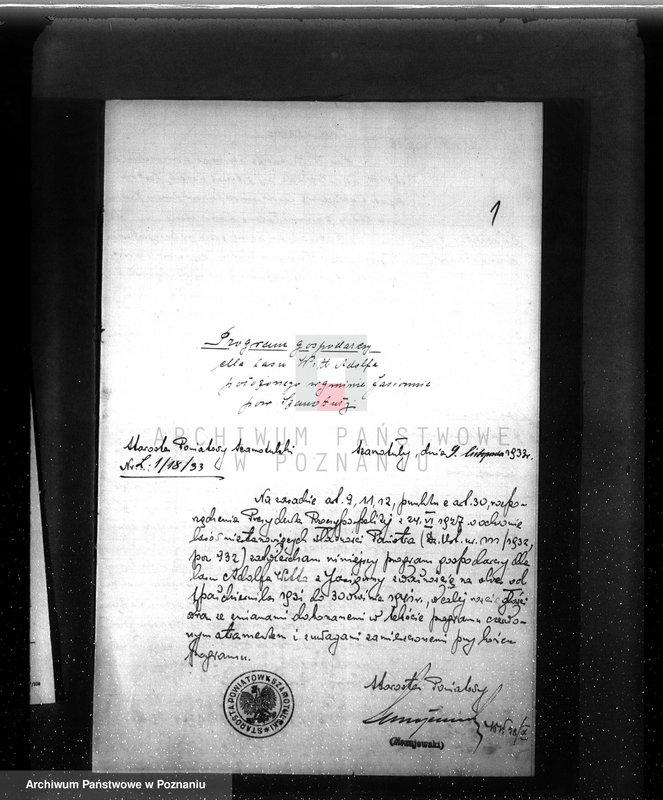 1
Program gospodarczy
dla lasu Witt Adolfa
położonego w gminie
pow Szamotuły.
ARCHIWUM PAŃSTWOWE
W POZNANIU
Starosta Powiatowy Szamotulski Szamotuły, dnia 9. listopada 1933r.
Nr. L: 1/18/33
Na zasadzie art. 9, 11, 12, punktu e art. 30, rozpo-
rządzenia Prezydenta Rzeczypospolitej z 24. VI 1927 o ochronie
lasów niestanowiących własności Państwa (Dz. Ust. nr. 111/1932,
poz 932) zatwierdzam niniejszy program gospodarczy dla
lasu Adolfa Witta z na okres od
1 października 193 do 30 września 194 r.,
oraz ze zmianami dokonanemi w tekście programu czerwo-
nym atramentem i uwagami zamieszczonemi przy końcu
programu.
Starosta Powiatowy
STAROSTA POWIATOWY SZAMOTULSKI
Archiwum Państwowe w Poznaniu